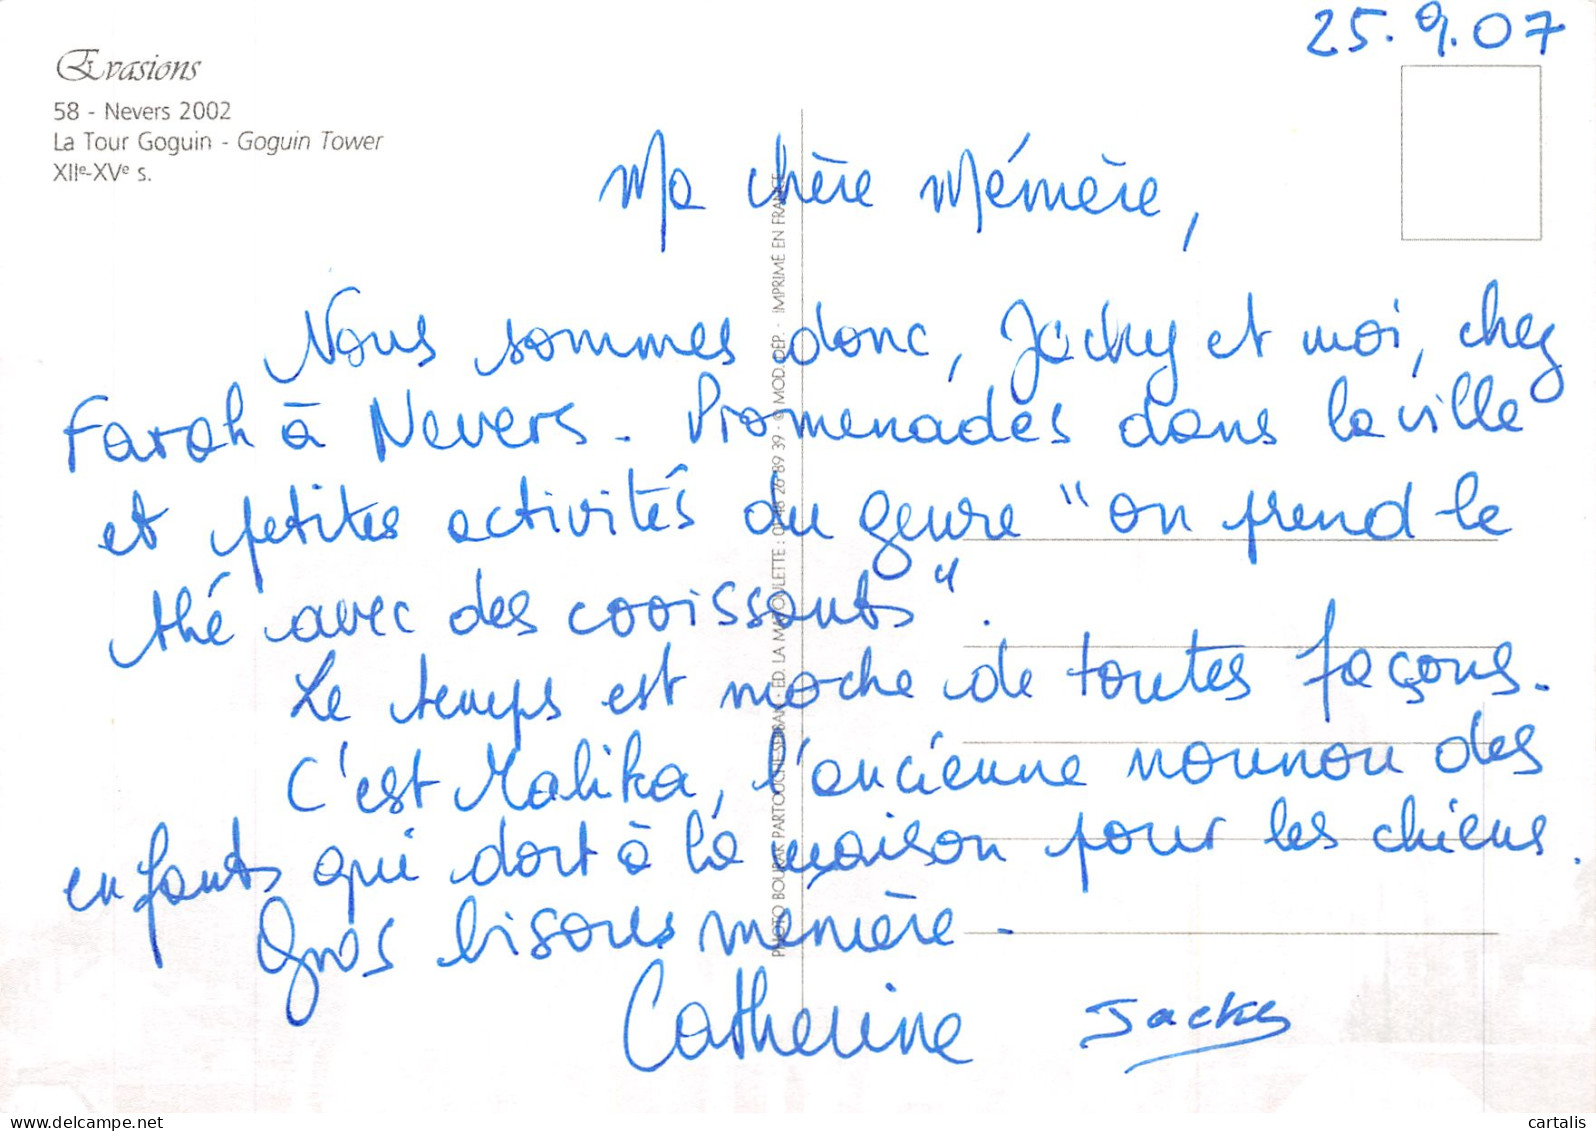 25.9.07
Evasions
58 - Nevers 2002
La Tour Goguin - Goguin Tower
XIIe-XVe s.
Ma chère Mémère,
Nous sommes donc, Jacky et moi, chez
Farah à Nevers. Promenades dans la ville
et petites activités du genre "on prend le
thé avec des croissants".
Le temps est moche de toutes façons.
C'est Malika, l'ancienne nounou des
enfants qui dort à la maison pour les chiens.
Gros bisous mémère.
Catherine
Jacky
PHOTO BOURAK PARTOUCHE-SEBBAN - ED. LA MAJOULETTE : 01 48 26 89 39 - © MOD. DÉP. - IMPRIMÉ EN FRANCE
www.delcampe.net
cartalis